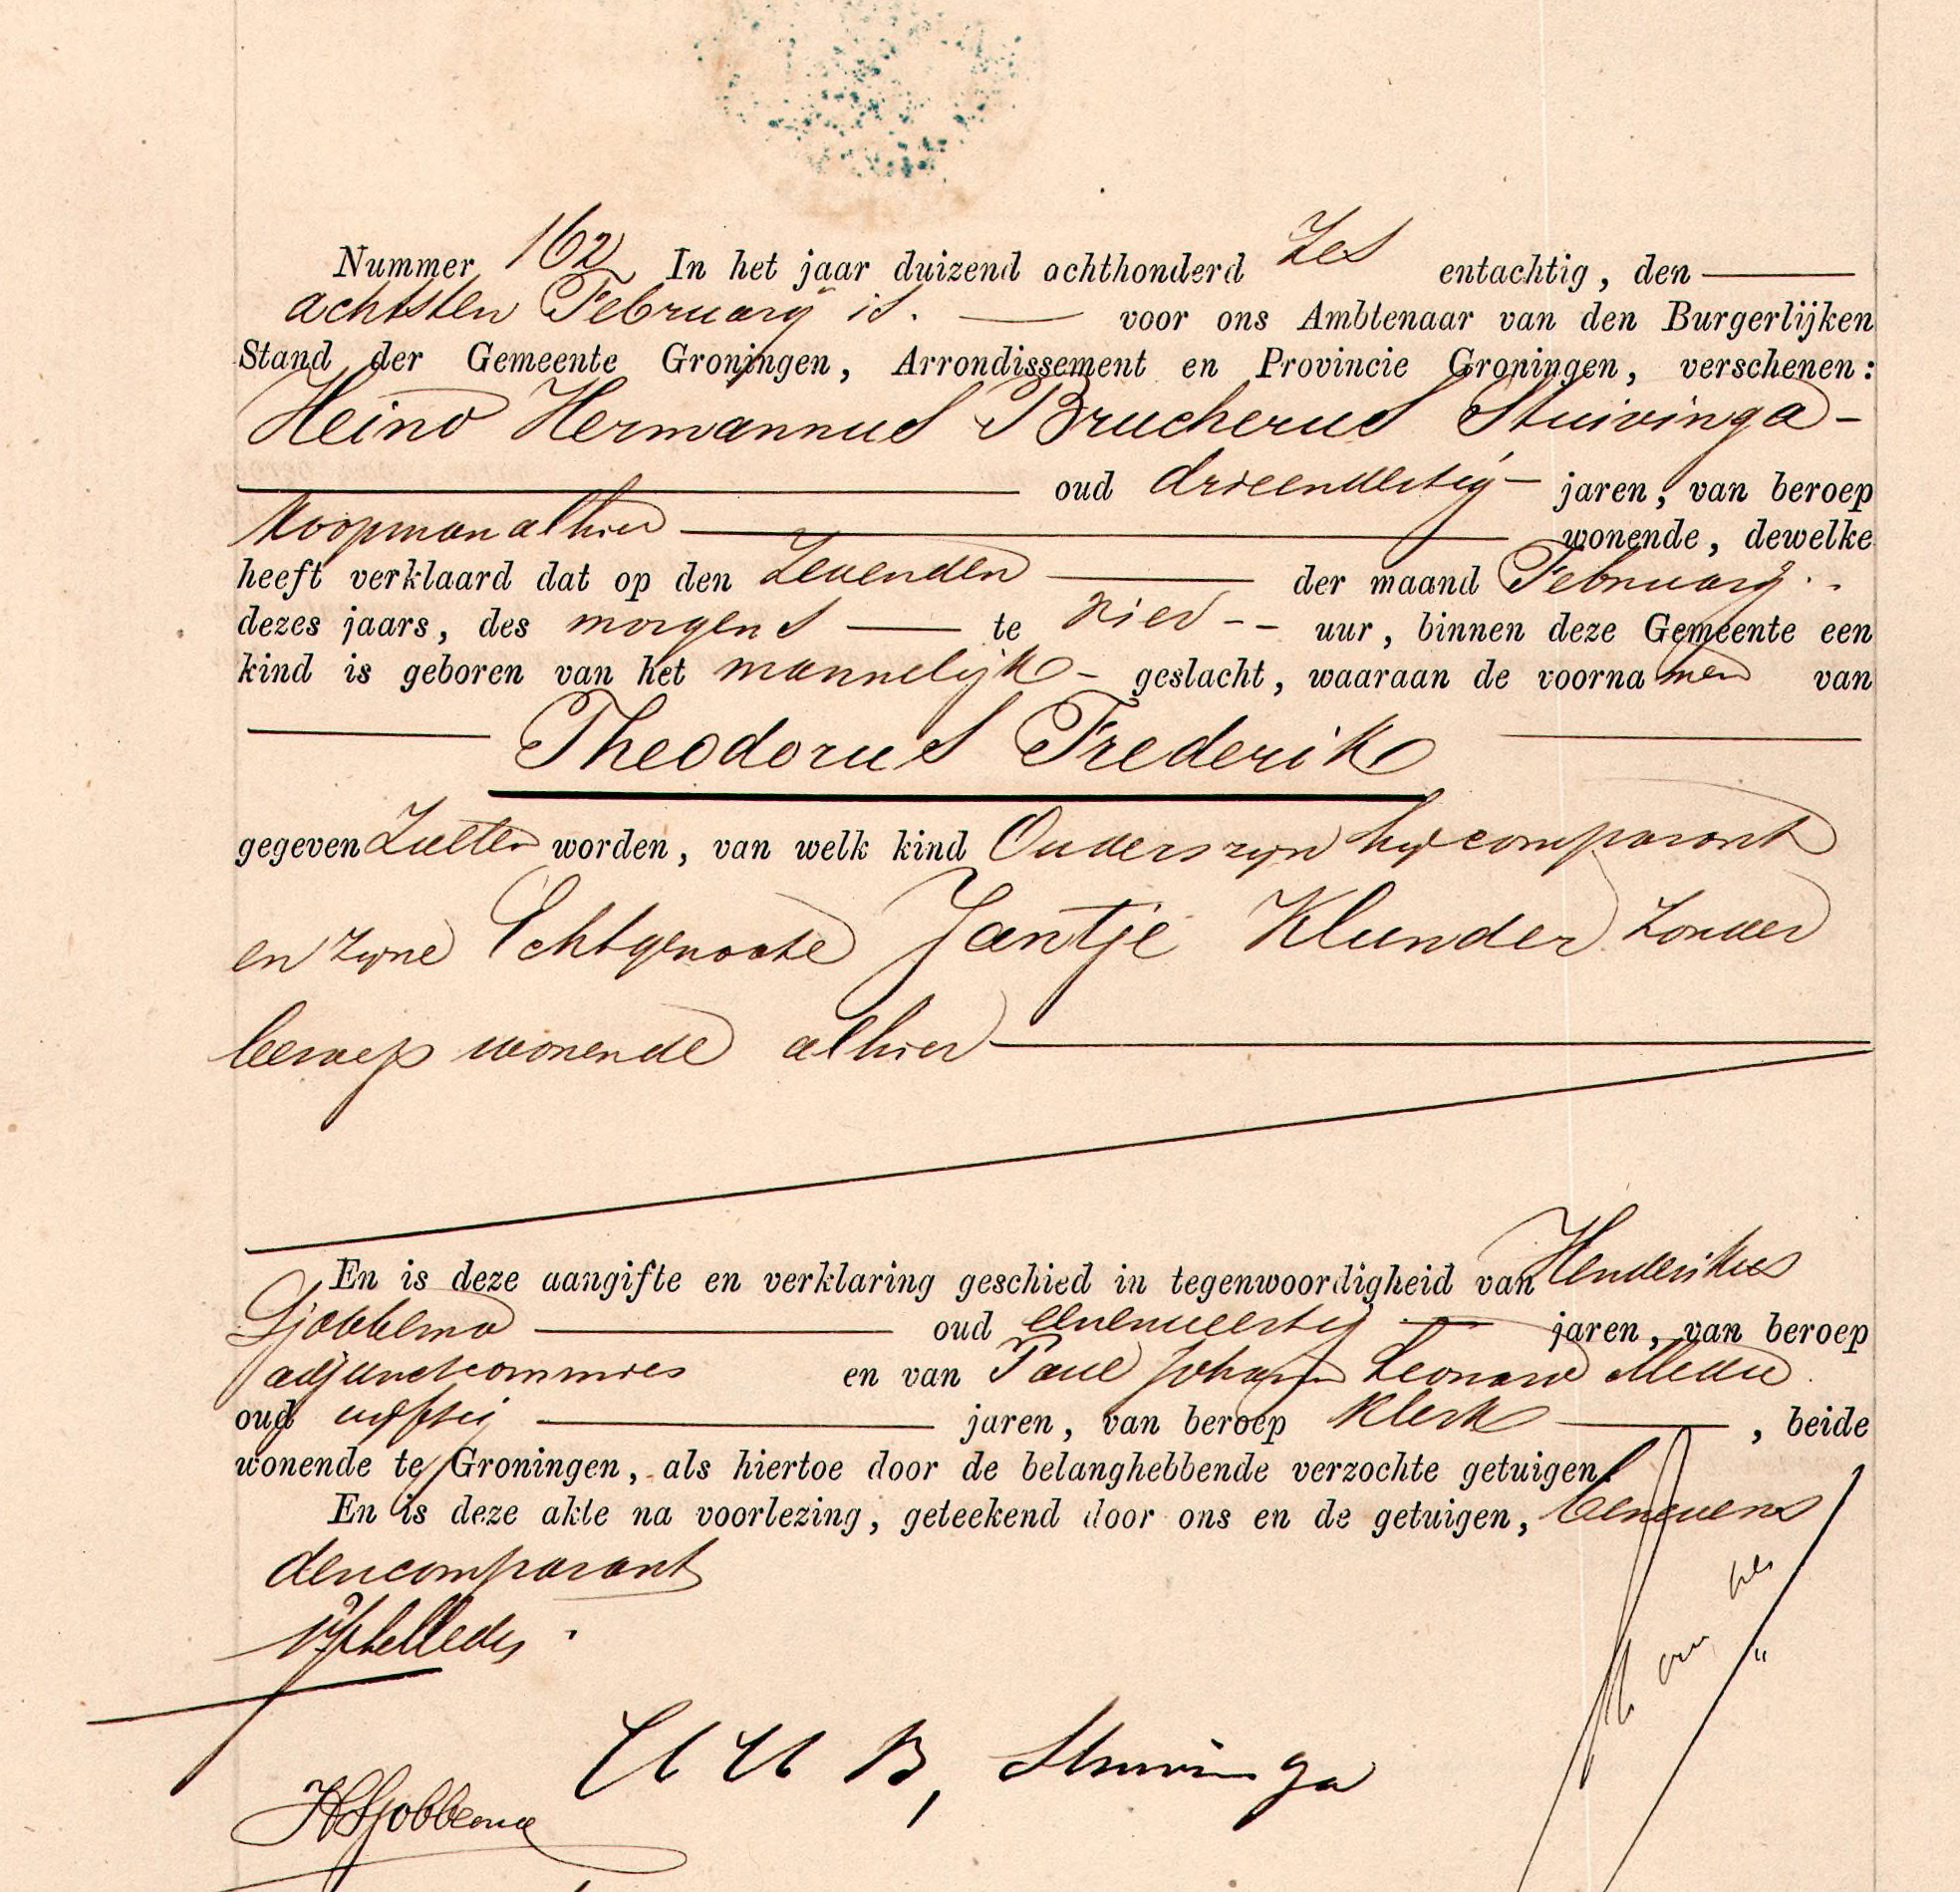 Nummer 162 In het jaar duizend achthonderd Zes entachtig, den
achtsten February is. voor ons Ambtenaar van den Burgerlijken
Stand der Gemeente Groningen, Arrondissement en Provincie Groningen, verschenen:
Heino Hermannus Brucherus Stuivinga
oud drieendertig jaren, van beroep
Koopman alhier wonende, dewelke
heeft verklaard dat op den Zevenden der maand February
dezes jaars, des morgens te vier uur, binnen deze Gemeente een
kind is geboren van het mannelijk geslacht, waaraan de voornamen van
Theodorus Frederik
gegeven Zullen worden, van welk kind Ouders zijn hij comparant
en zijne Echtgenoote Jantje Klunder zonder
beroep wonende alhier
En is deze aangifte en verklaring geschied in tegenwoordigheid van Henderikus
Sjobbema oud eenenveertig jaren, van beroep
adjunctcommies en van Paul Johann Leonard
oud vijftig jaren, van beroep Klerk, beide
wonende te Groningen, als hiertoe door de belanghebbende verzochte getuigen.
En is deze akte na voorlezing, geteekend door ons en de getuigen, benevens
den comparant
HSjobbema
H H B, Stuivinga